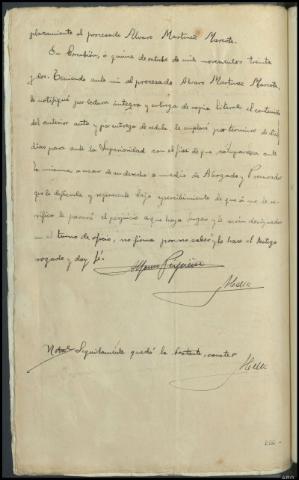 plazamiento al procesado Alvaro Martinez Marote.
En Corcubión, a quince de octubre de mil novecientos treinta
y dos. Teniendo ante mi al procesado Alvaro Martinez Marcote,
le notifiqué por lectura íntegra y entrega de copia literal el contenido
del anterior auto y por entrega de cédula le emplacé por término de diez
días para ante la Superioridad con el fin de que comparezca ante
la misma a usar de su derecho a medio de Abogado y Procurador
que lo defienda y represente bajo apercibimiento de que si no lo ve-
rifica le parará el perjuicio a que haya lugar y le serán designados
en el turno de oficio, no firma por no saber y lo hace el testigo
rogado y doy fé.
Nota Seguidamente quedó la bastante, consta